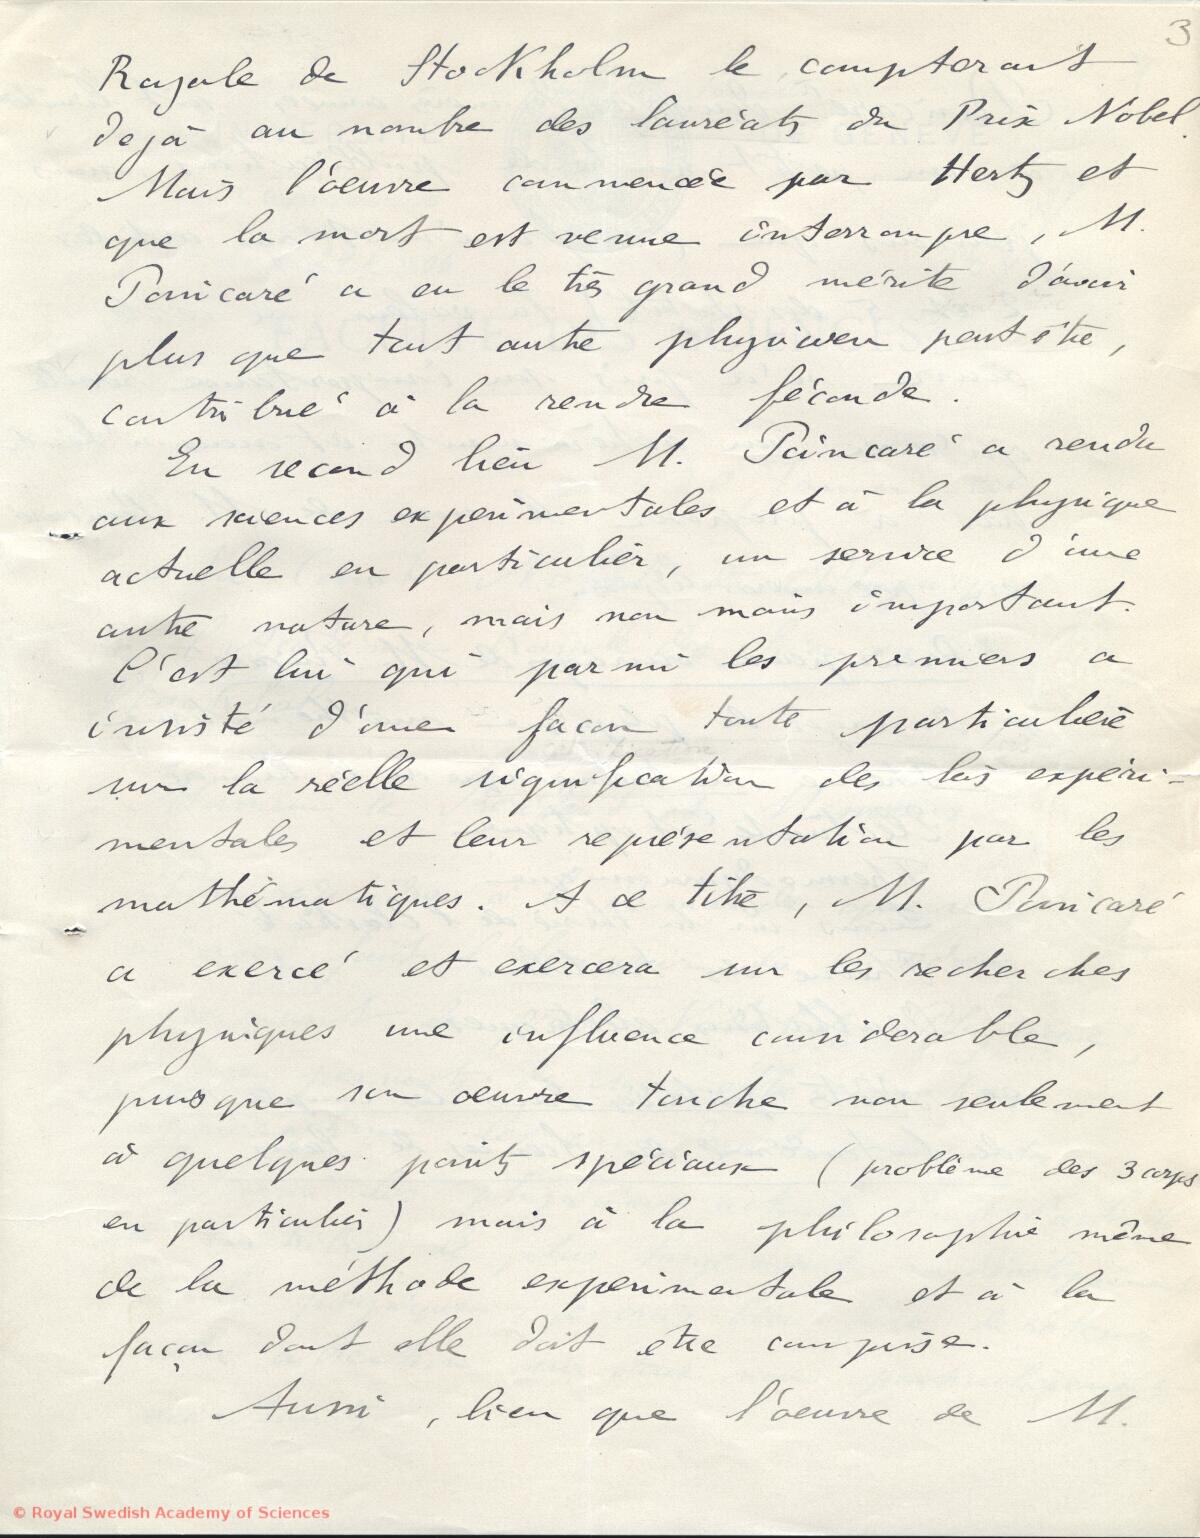 3
Royale de Stockholm le compterait
déjà au nombre des lauréats du Prix Nobel.
Mais l'oeuvre commencée par Hertz et
que la mort est venue interrompre, M.
Poincaré a eu le très grand mérite d'avoir
plus que tout autre physicien peut être,
contribué à la rendre féconde.
En second lieu M. Poincaré a rendu
aux sciences expérimentales et à la physique
actuelle en particulier, un service d'une
autre nature, mais non moins important.
C'est lui qui parmi les premiers a
insisté d'une façon toute particulière
sur la réelle signification des lois expéri-
mentales et leur représentation par les
mathématiques. A ce titre, M. Poincaré
a exercé et exercera sur les recherches
physiques une influence considerable,
puisque son oeuvre touche non seulement
à quelques points spéciaux (problème des 3 corps
en particulier) mais à la philosophie même
de la méthode expérimentale et à la
façon dont elle doit etre comprise.
Aussi, bien que l'oeuvre de M.
© Royal Swedish Academy of Sciences